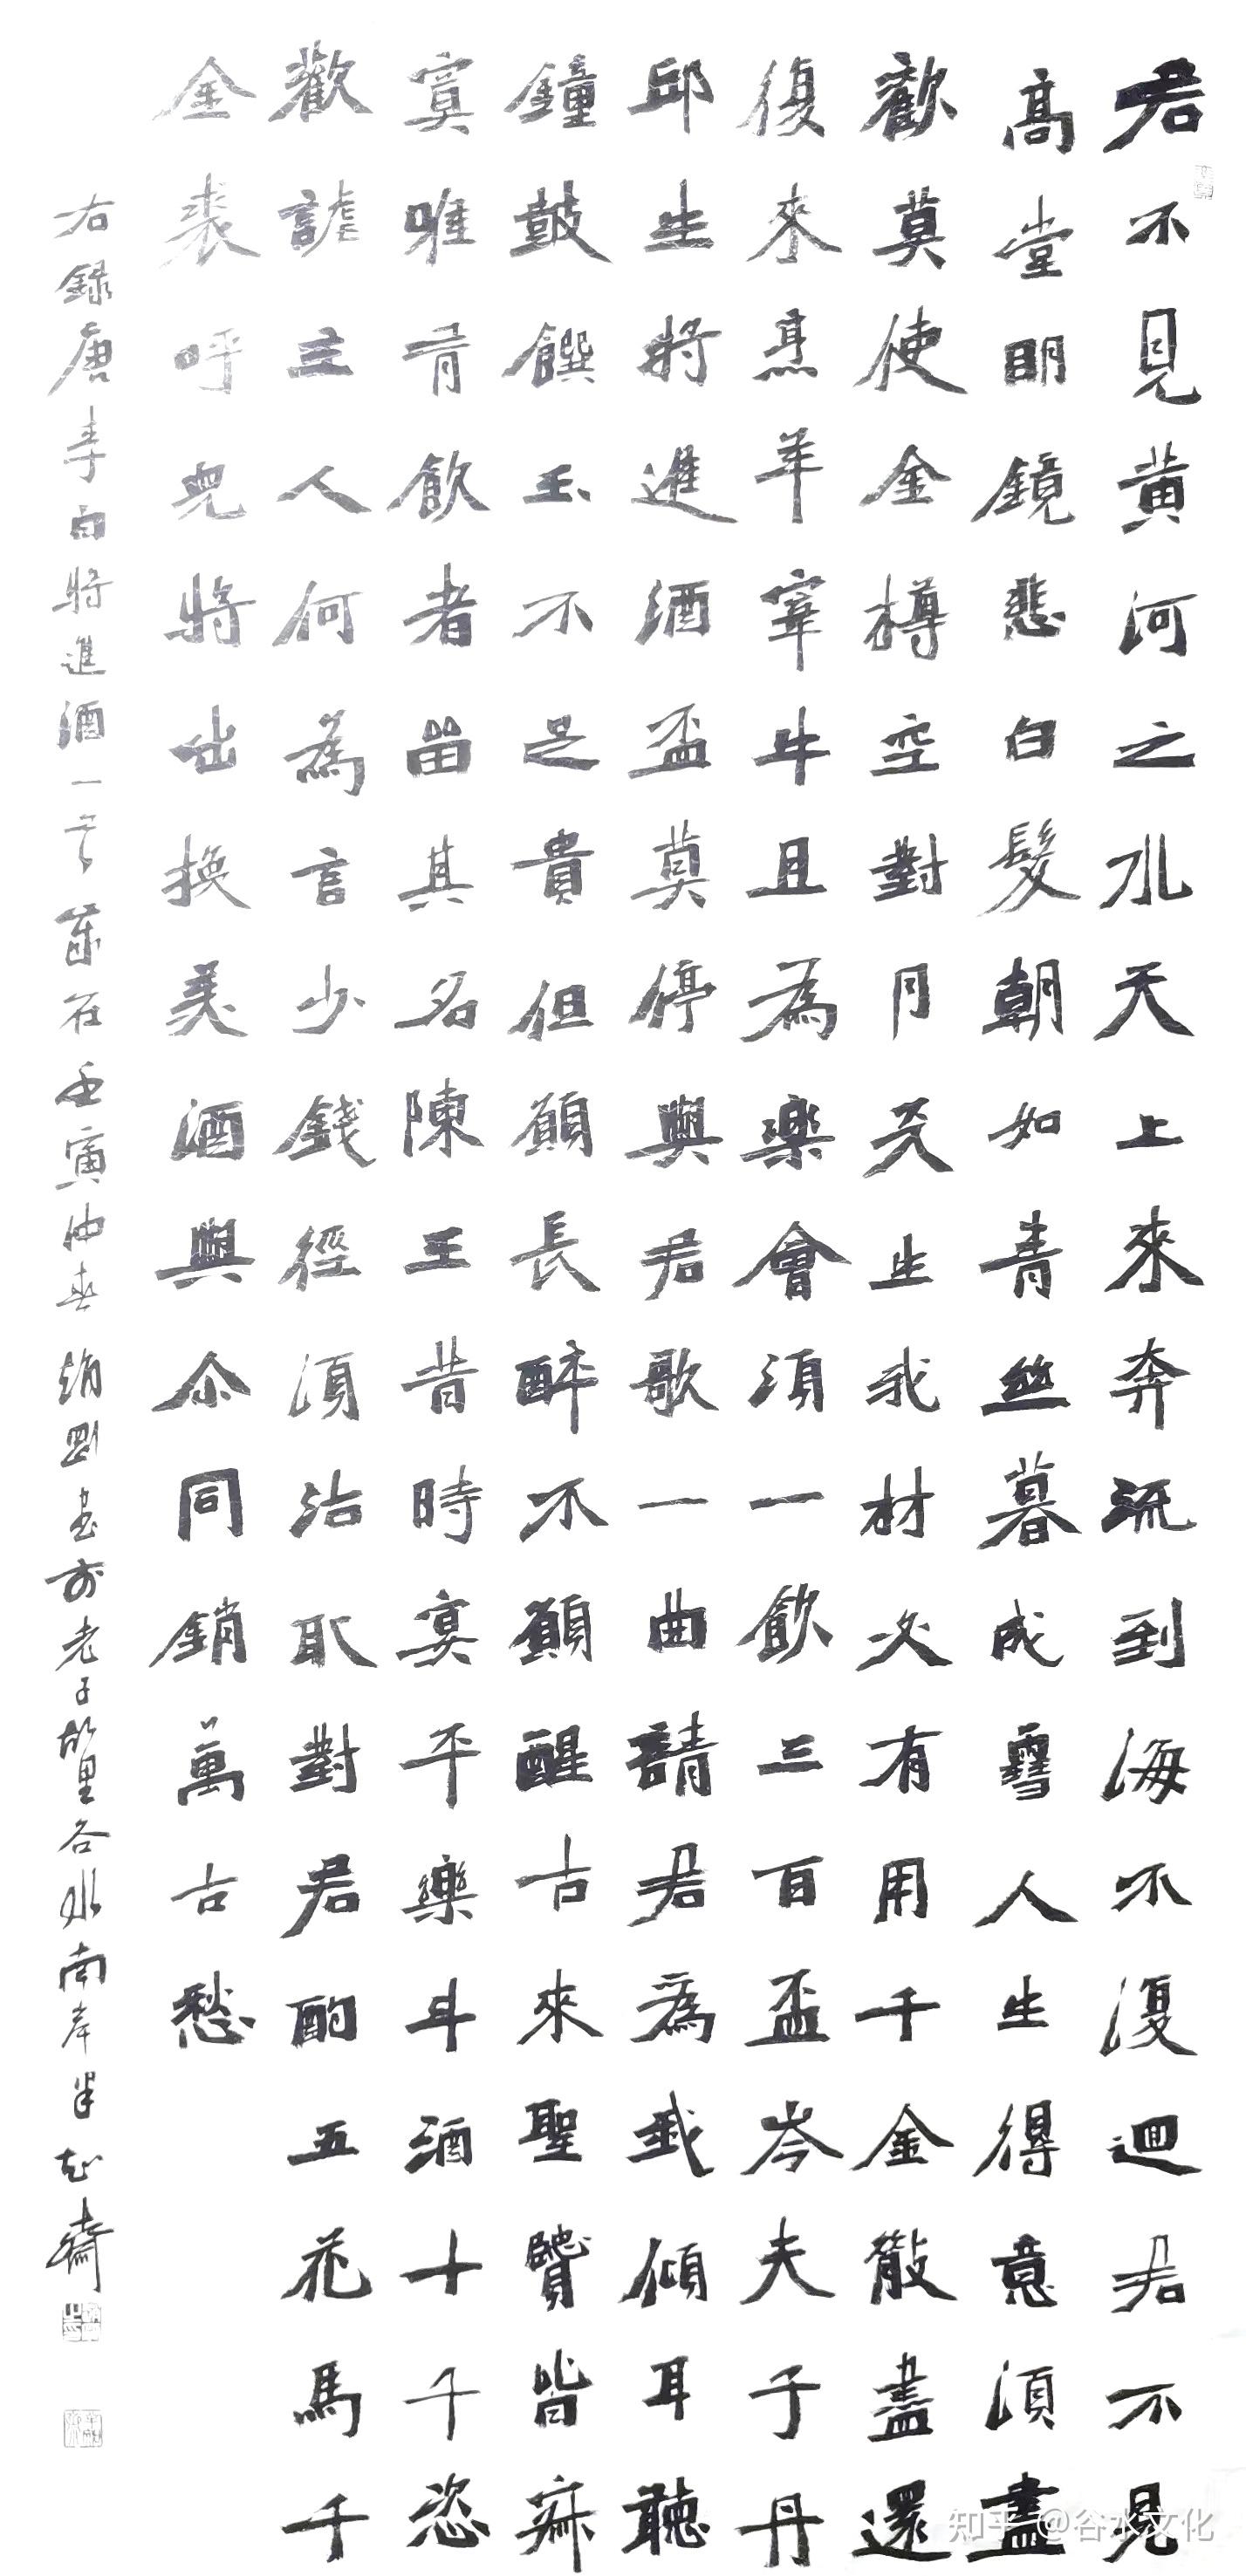 君不見黃河之水天上來奔流到海不復迴君不見
高堂明鏡悲白髮朝如青絲暮成雪人生得意須盡
歡莫使金樽空對月天生我材必有用千金散盡還
復來烹羊宰牛且為樂會須一飲三百盃岑夫子丹
邱生將進酒盃莫停與君歌一曲請君為我傾耳聽
鐘鼓饌玉不足貴但願長醉不願醒古來聖賢皆寂
寞唯有飲者留其名陳王昔時宴平樂斗酒十千恣
歡謔主人何為言少錢徑須沽取對君酌五花馬千
金裘呼兒將出換美酒與尒同銷萬古愁
右錄唐李白將進酒一首歲在壬寅仲春趙剛書於老子故里谷水南岸半知齋
知乎 @谷水文化